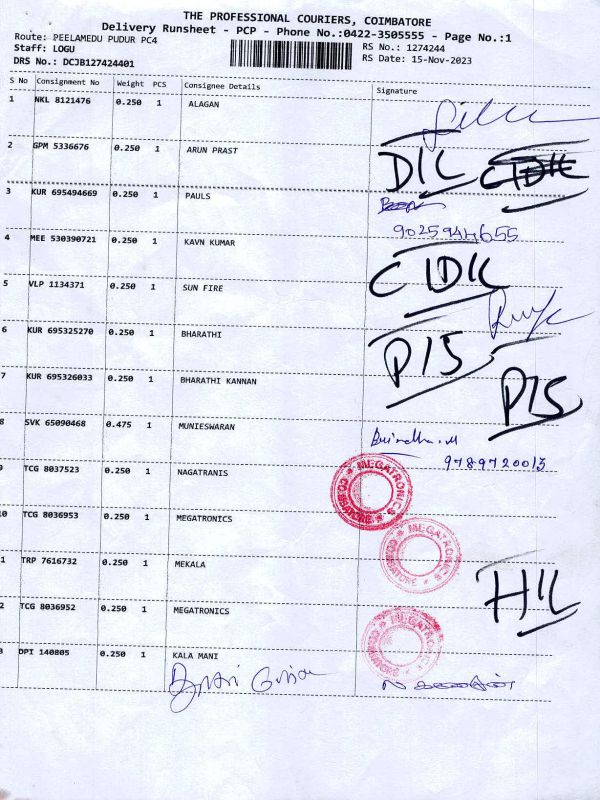 THE PROFESSIONAL COURIERS, COIMBATORE
Delivery Runsheet - PCP - Phone No.:0422-3505555 - Page No.:1
Route: PEELAMEDU PUDUR PC4
Staff: LOGU
RS No.: 1274244
DRS No.: DCJB127424401
RS Date: 15-Nov-2023
S No Consignment No Weight PCS Consignee Details Signature
1 NKL 8121476 0.250 1 ALAGAN
2 GPM 5336676 0.250 1 ARUN PRAST D/L
3 KUR 695494669 0.250 1 PAULS
9025944655
4 MEE 530390721 0.250 1 KAVN KUMAR
5 VLP 1134371 0.250 1 SUN FIRE
6 KUR 695325270 0.250 1 BHARATHI P/S
7 KUR 695326033 0.250 1 BHARATHI KANNAN P/S
8 SVK 65090468 0.475 1 MUNIESWARAN
9789720013
9 TCG 8037523 0.250 1 NAGATRANIS MEGATRONICS COIMBATORE
10 TCG 8036953 0.250 1 MEGATRONICS MEGATRONICS COIMBATORE
1 TRP 7616732 0.250 1 MEKALA H/L
2 TCG 8036952 0.250 1 MEGATRONICS MEGATRONICS COIMBATORE
3 DPI 140805 0.250 1 KALA MANI